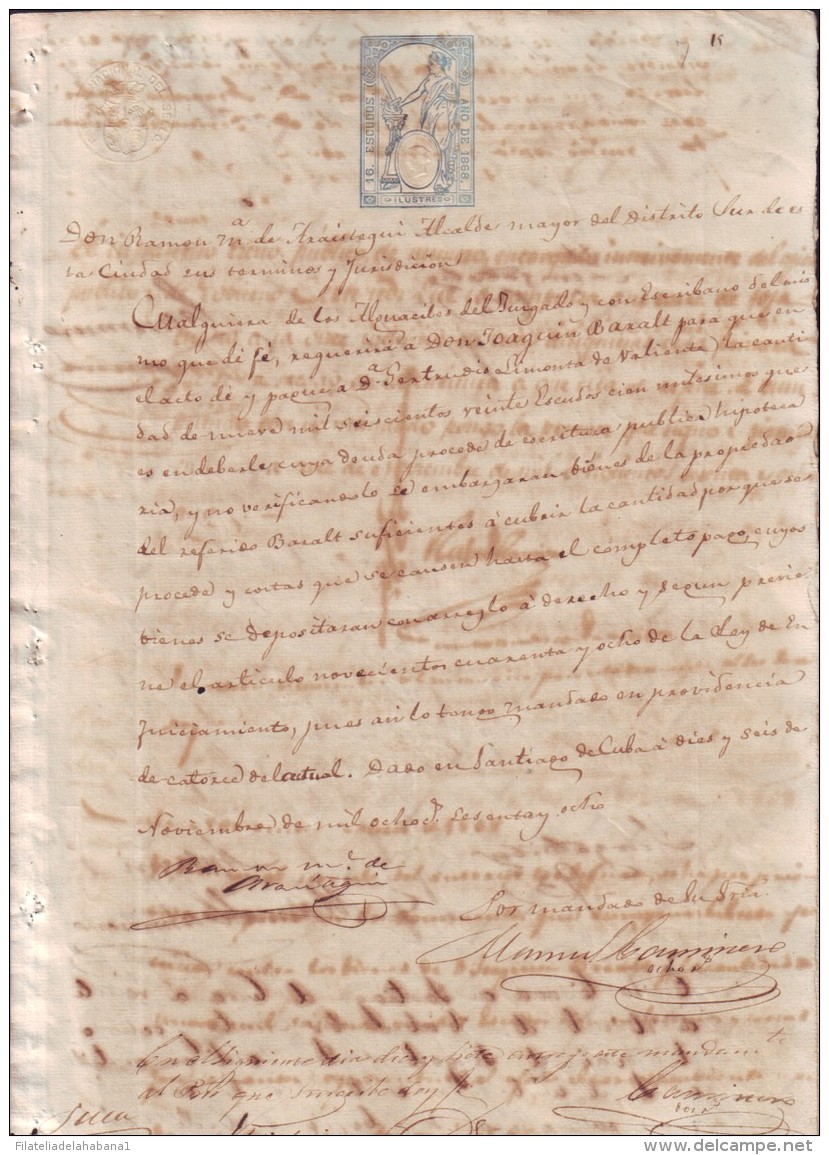 15
16. ESCUDOS
AÑO DE 1868
ILUSTRES
Don Ramon Mª de Araistegui Alcalde mayor del Distrito Sur de es
ta Ciudad sus terminos y Jurisdicion
Cualquiera de los Alguaciles del Juzgado y con Escribano del mis
mo que dé fé, requerirá á Don Joaquin Baralt para que en
el acto dé y pague a Dª Gertrudis Limonta de Valiente la canti
dad de nueve mil seiscientos veinte Escudos cien milesimos que
es en deberle cuya deuda procede de escritura publica hipoteca
ria, y no verificandolo se embargaran bienes de la propiedad
del referido Baralt suficientes á cubrir la cantidad porque se
procede y costas que se causen hasta el completo pago, cuyos
bienes se depositaran con arreglo á derecho y segun previe
ne el articulo novecientos cuarenta y ocho de la Ley de En
juiciamiento, pues asi lo tengo mandado en providencia
de catorce del actual. Dado en Santiago de Cuba á dies y seis de
Noviembre de mil ochocs. sesenta y ocho
Ramon Mª. de
Araistegui
Por mandado de Su Sria.
Manuel Caminero
En el mismo dia diez y siete entregué este mandamto
al
Caminero
Filateliadelahabana1
www.delcampe.net